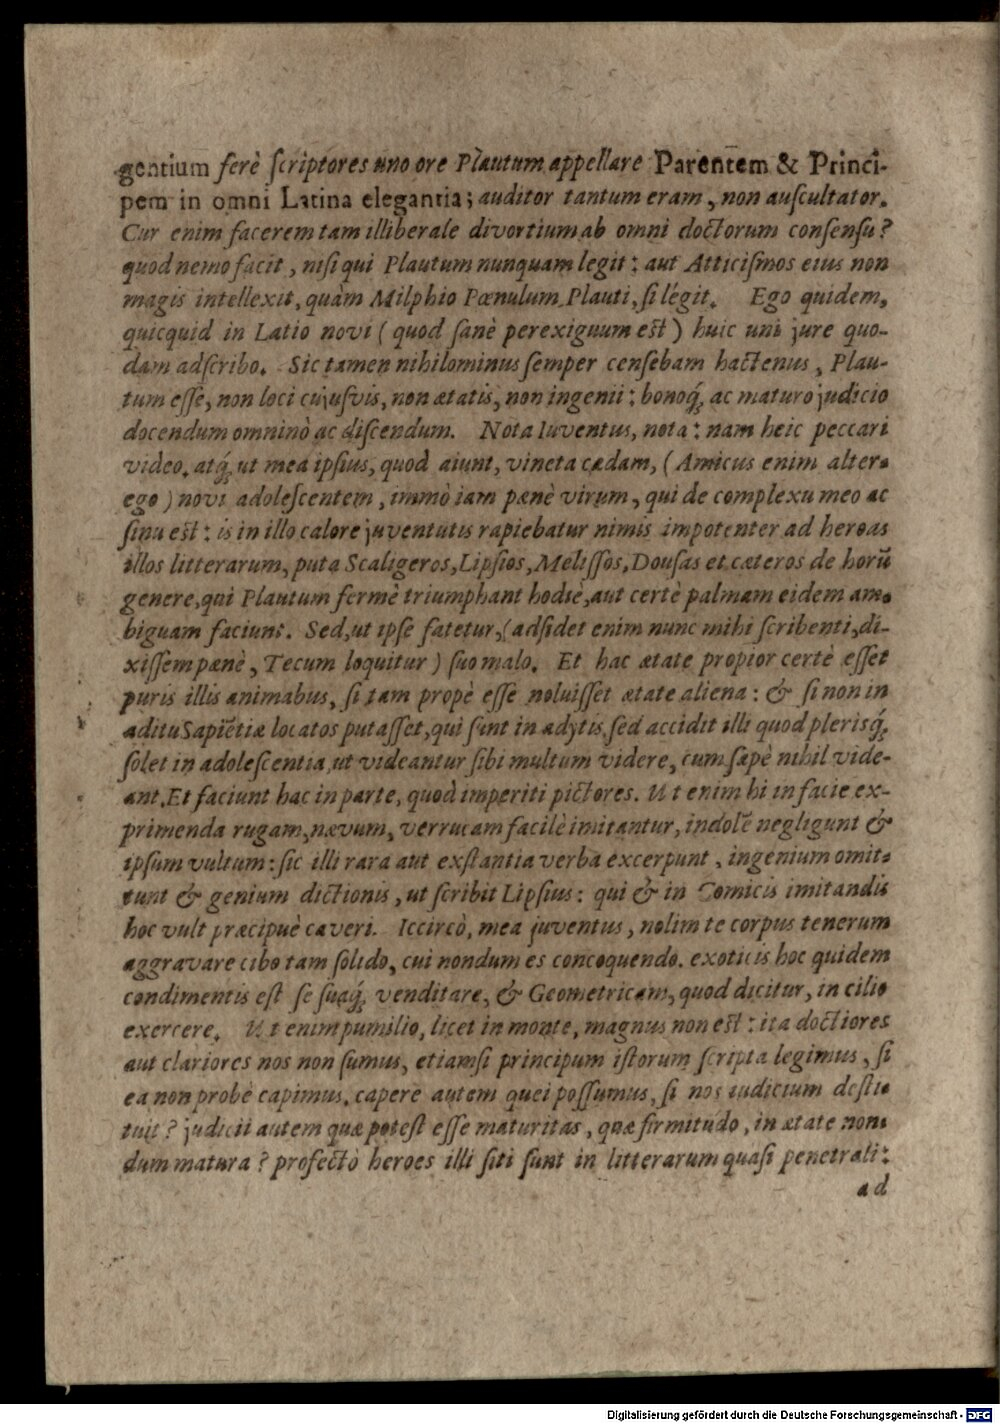 gentium ferè ſcriptores uno ore Plautum appellare Parentem & Princi-
pem in omni Latina elegantia; auditor tantum eram, non auſcultator.
Cur enim facerem tam illiberale divortium ab omni doctorum conſenſu?
quod nemo facit, niſi qui Plautum nunquam legit: aut Atticiſmos eius non
magis intellexit, quàm Milphio Pœnulum Plauti, ſi légit. Ego quidem,
quicquid in Latio novi (quod ſanè perexiguum eſt) huic uni jure quo-
dam adſcribo. Sic tamen nihilominus ſemper cenſebam hactenus, Plau-
tum eſſe, non loci cujuſvis, non ætatis, non ingenii: bonoq́; ac maturo judicio
docendum omninò ac diſcendum. Nota Iuventus, nota: nam heic peccari
video. atq́; ut mea ipſius, quod aiunt, vineta cædam, (Amicus enim alter
ego) novi adoleſcentem, immò iam pænè virum, qui de complexu meo ac
ſinu eſt: is in illo calore juventutis rapiebatur nimis impotenter ad heroas
illos litterarum, puta Scaligeros, Lipſios, Meliſſos, Douſas et cæteros de horũ
genere, qui Plautum fermè triumphant hodiè, aut certè palmam eidem am-
biguam faciunt. Sed, ut ipſe fatetur, (adſidet enim nunc mihi ſcribenti, di-
xiſſem pænè, Tecum loquitur) ſuo malo. Et hac ætate propior certè eſſet
puris illis animabus, ſi tam propè eſſe noluiſſet ætate aliena: & ſi non in
aditu Sapiẽtiæ locatos putaſſet, qui ſint in adytis, ſed accidit illi quod plerisq́;
ſolet in adoleſcentia, ut videantur ſibi multum videre, cum ſæpè nihil vide-
ant. Et faciunt hac in parte, quod imperiti pictores. Ut enim hi in facie ex-
primenda rugam, nævum, verrucam facilè imitantur, indolẽ negligunt &
ipſum vultum: ſic illi rara aut exſtantia verba excerpunt, ingenium omit-
tunt & genium dictionis, ut ſcribit Lipſius: qui & in Comicis imitandis
hoc vult præcipuè caveri. Iccircò, mea juventus, nolim te corpus tenerum
aggravare cibo tam ſolido, cui nondum es concoquendo. exoticis hoc quidem
condimentis eſt ſe ſuaq́; venditare, & Geometricam, quod dicitur, in cilio
exercere. Ut enim pumilio, licet in monte, magnus non eſt: ita doctiores
aut clariores nos non ſumus, etiamſi principum iſtorum ſcripta legimus, ſi
ea non probè capimus. capere autem quei poſſumus, ſi nos iudicium deſti-
tuit? judicii autem quæ poteſt eſſe maturitas, quæ firmitudo, in ætate non-
dum matura? profectò heroes illi ſiti ſunt in litterarum quaſi penetrali:
ad
Digitalisierung gefördert durch die Deutsche Forschungsgemeinschaft - DFG